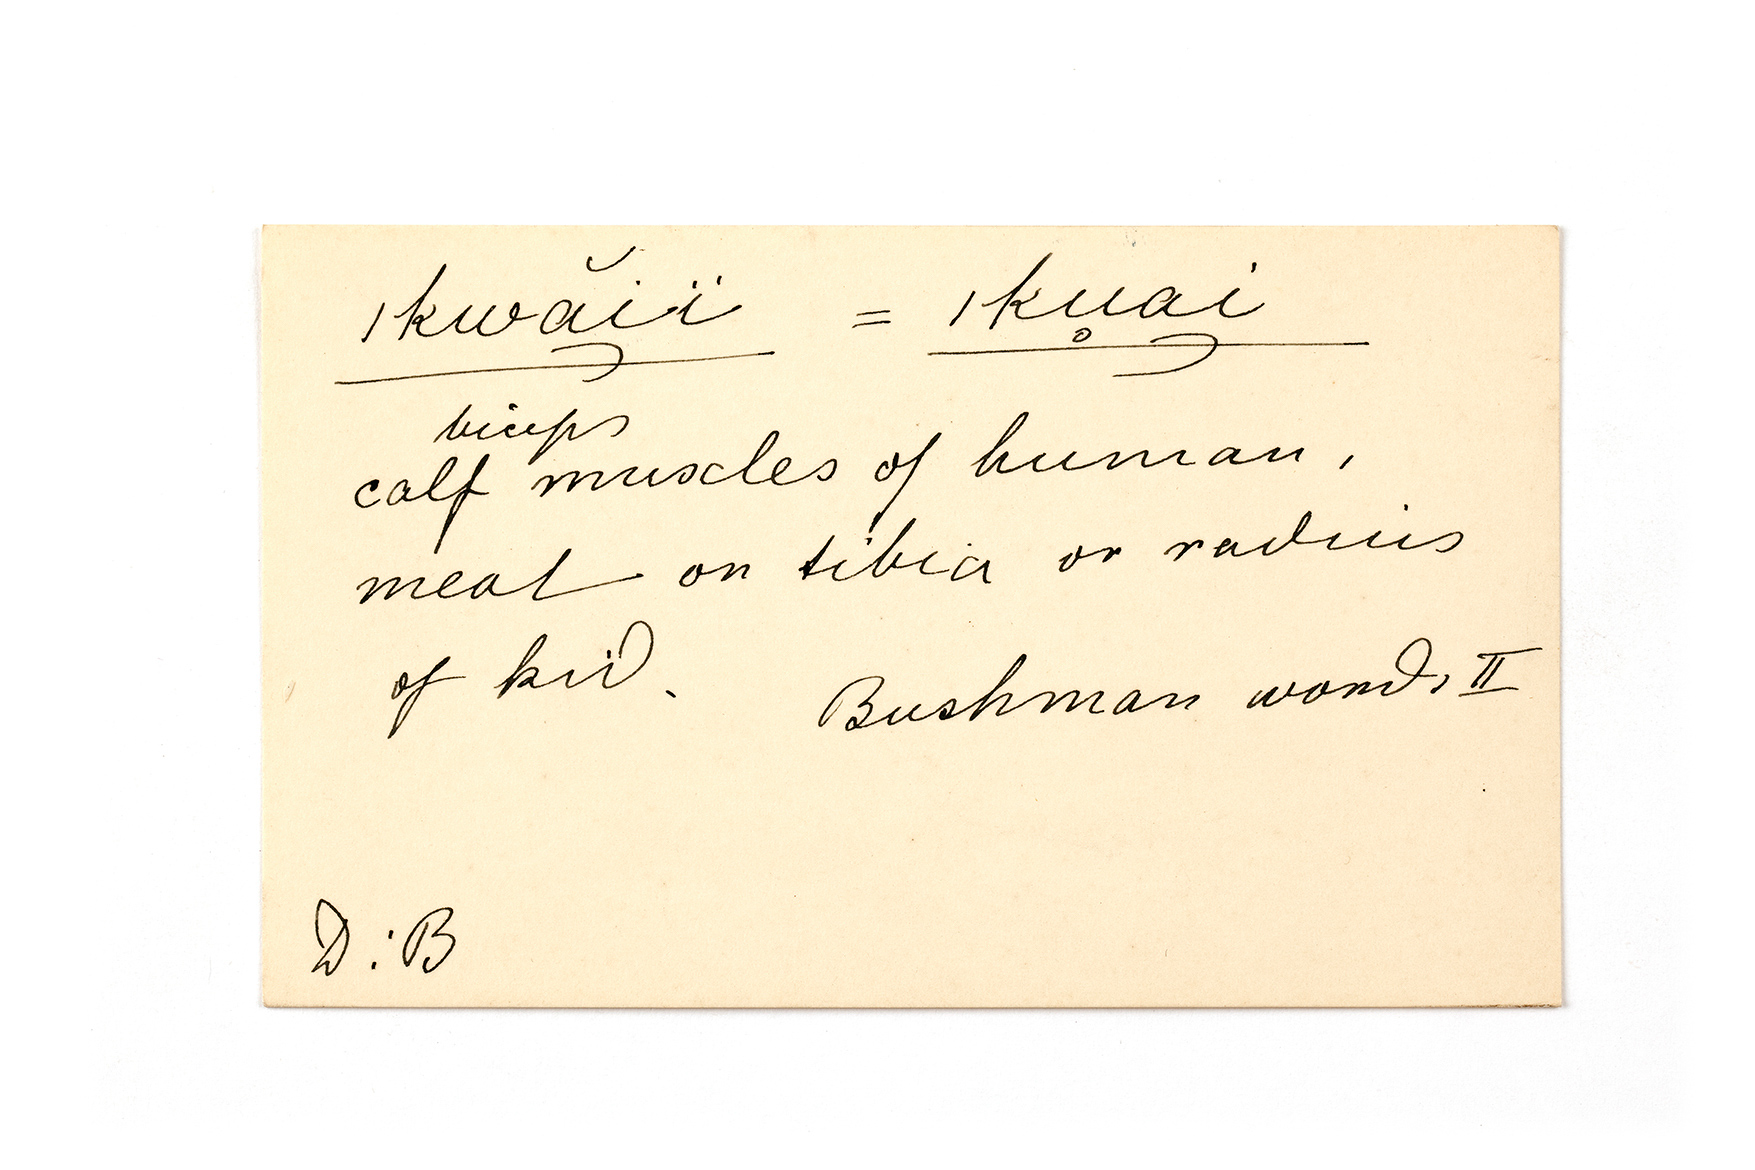 ǀkwā̆iï = ǀku̥ai
biceps
calf muscles of human,
meat on tibia or radius
of kid.
Bushman words II
D:B